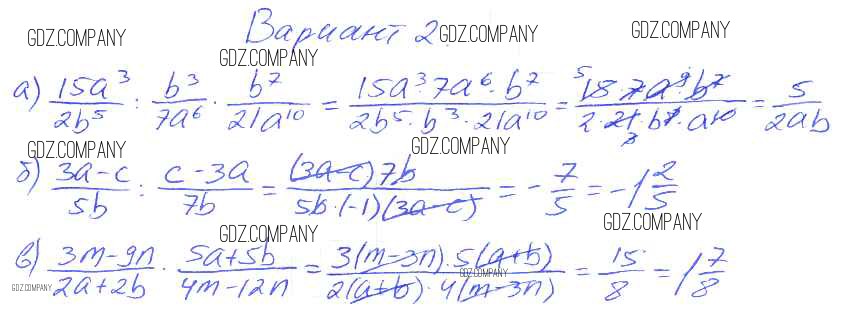 Вариант 2.
GDZ.COMPANY GDZ.COMPANY GDZ.COMPANY
GDZ.COMPANY
а) 15a³/2b⁵ : b³/7a⁶ · b⁷/21a¹⁰ = 15a³·7a⁶·b⁷/2b⁵·b³·21a¹⁰ = ⁵15·7a⁹·b⁷/2·21·b⁸·a¹⁰ 3 = 5/2ab
GDZ.COMPANY GDZ.COMPANY
б) 3a-c/5b : c-3a/7b = (3a-c)7b/5b·(-1)(3a-c) = -7/5 = -1 2/5
GDZ.COMPANY GDZ.COMPANY
в) 3m-9n/2a+2b · 5a+5b/4m-12n = 3(m-3n)·5(a+b)/2(a+b)·4(m-3n) = 15/8 = 1 7/8
GDZ.COMPANY GDZ.COMPANY